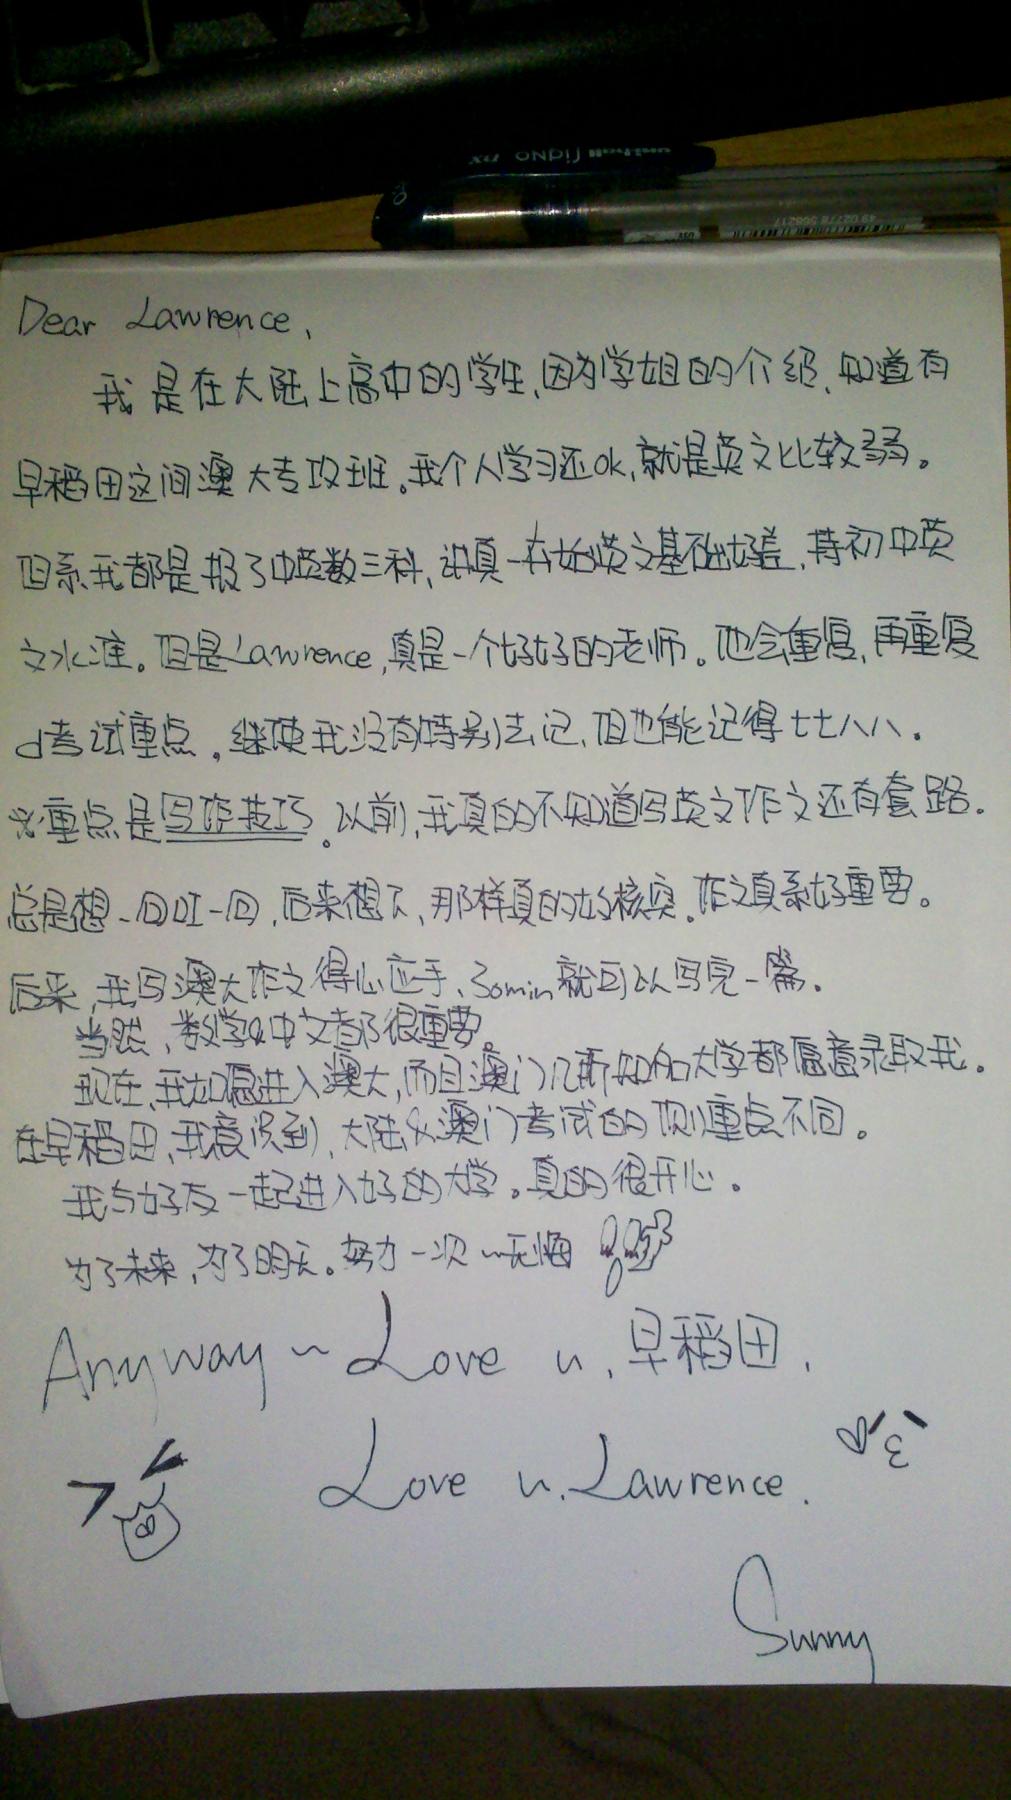 uni-ball figNO DX
49 02778 568217
Dear Lawrence,
我是在大陆上高中的学生,因为学姐的介绍,知道有
早稻田这间澳大专攻班。我个人学习还ok,就是英文比较弱。
但系我都是报了中英数三科,讲真一开始英文基础好差,得初中英
文水准。但是Lawrence,真是一个好好的老师。他会重复,再重复
d考试重点。继使我没有特别去记,但也能记得七七八八。
※重点是写作技巧。以前,我真的不知道写英文作文还有套路。
总是想一回口工一回,后来想下,那样真的好核突。作文真系好重要。
后来,我写澳大作文得心应手、30min就可以写完一篇。
当然,数学&中文都很重要。
现在,我如愿进入澳大,而且澳门几所知名大学都愿意录取我。
在早稻田,我意识到,大陆&澳门考试的侧重点不同。
我与好友一起进入好的大学。真的很开心。
为了未来,为了明天。努力一次~无悔
Anyway~Love u,早稻田,
Love u,Lawrence.
Sunny